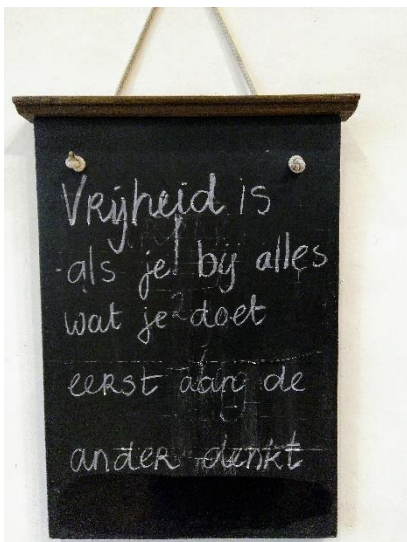 Vrijheid is
als je bij alles
wat je doet
eerst aan de
ander denkt